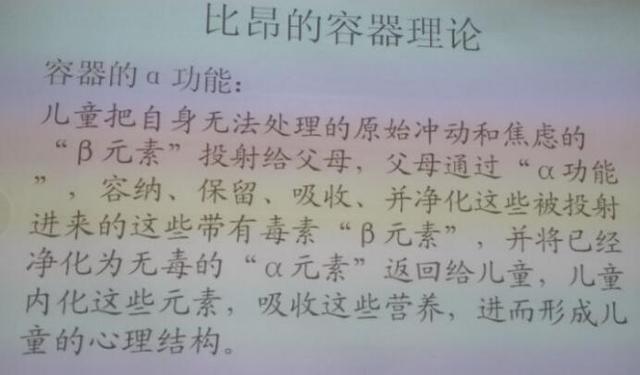 比昂的容器理论
容器的α功能：
儿童把自身无法处理的原始冲动和焦虑的
“β元素”投射给父母，父母通过“α功能
”，容纳、保留、吸收、并净化这些被投射
进来的这些带有毒素“β元素”，并将已经
净化为无毒的“α元素”返回给儿童，儿童
内化这些元素，吸收这些营养，进而形成儿
童的心理结构。